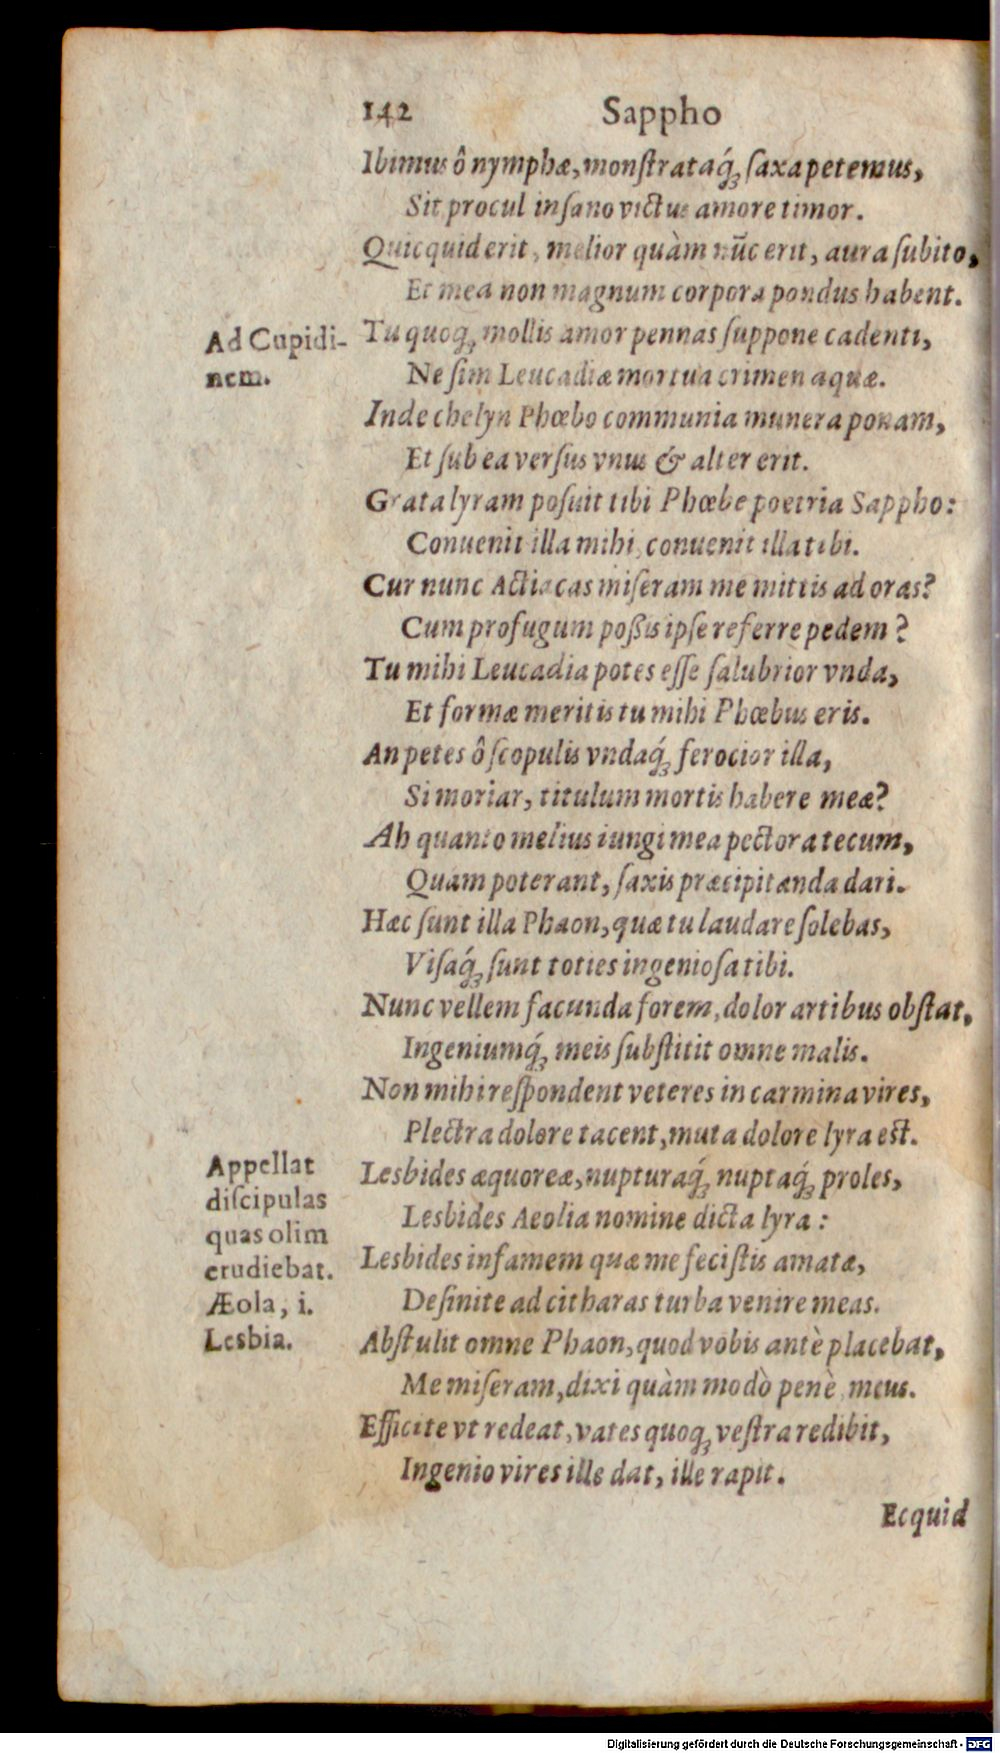 142 Sappho
Ibimus ô nymphæ, monſtrataq́; ſaxa petemus,
Sit procul inſano victus amore timor.
Quicquid erit, melior quàm nūc erit, aura ſubito,
Et mea non magnum corpora pondus habent.
Ad Cupidi-
nem.
Tu quoq; mollis amor pennas ſuppone cadenti,
Ne ſim Leucadiæ mortua crimen aquæ.
Inde chelyn Phœbo communia munera ponam,
Et ſub ea verſus vnus & alter erit.
Grata lyram poſuit tibi Phœbe poetria Sappho:
Conuenit illa mihi, conuenit illa tibi.
Cur nunc Actiacas miſeram me mittis ad oras?
Cum profugum poßis ipſe referre pedem?
Tu mihi Leucadia potes eſſe ſalubrior vnda,
Et formæ meritis tu mihi Phœbus eris.
An petes ô ſcopulis vndaq́; ferocior illa,
Si moriar, titulum mortis habere meæ?
Ah quanto melius iungi mea pectora tecum,
Quam poterant, ſaxis præcipitanda dari.
Hæc ſunt illa Phaon, quæ tu laudare ſolebas,
Viſaq́; ſunt toties ingenioſa tibi.
Nunc vellem facunda forem, dolor artibus obſtat,
Ingeniumq́; meis ſubſtitit omne malis.
Non mihi reſpondent veteres in carmina vires,
Plectra dolore tacent, muta dolore lyra eſt.
Appellat
diſcipulas
quas olim
erudiebat.
Æola, i.
Lesbia.
Lesbides æquoreæ, nupturaq́; nuptaq́; proles,
Lesbides Aeolia nomine dicta lyra:
Lesbides infamem quæ me feciſtis amatæ,
Deſinite ad citharas turba venire meas.
Abſtulit omne Phaon, quod vobis antè placebat,
Me miſeram, dixi quàm modò penè, meus.
Efficite vt redeat, vates quoq; veſtra redibit,
Ingenio vires ille dat, ille rapit.
Ecquid
Digitalisierung gefördert durch die Deutsche Forschungsgemeinschaft - DFG